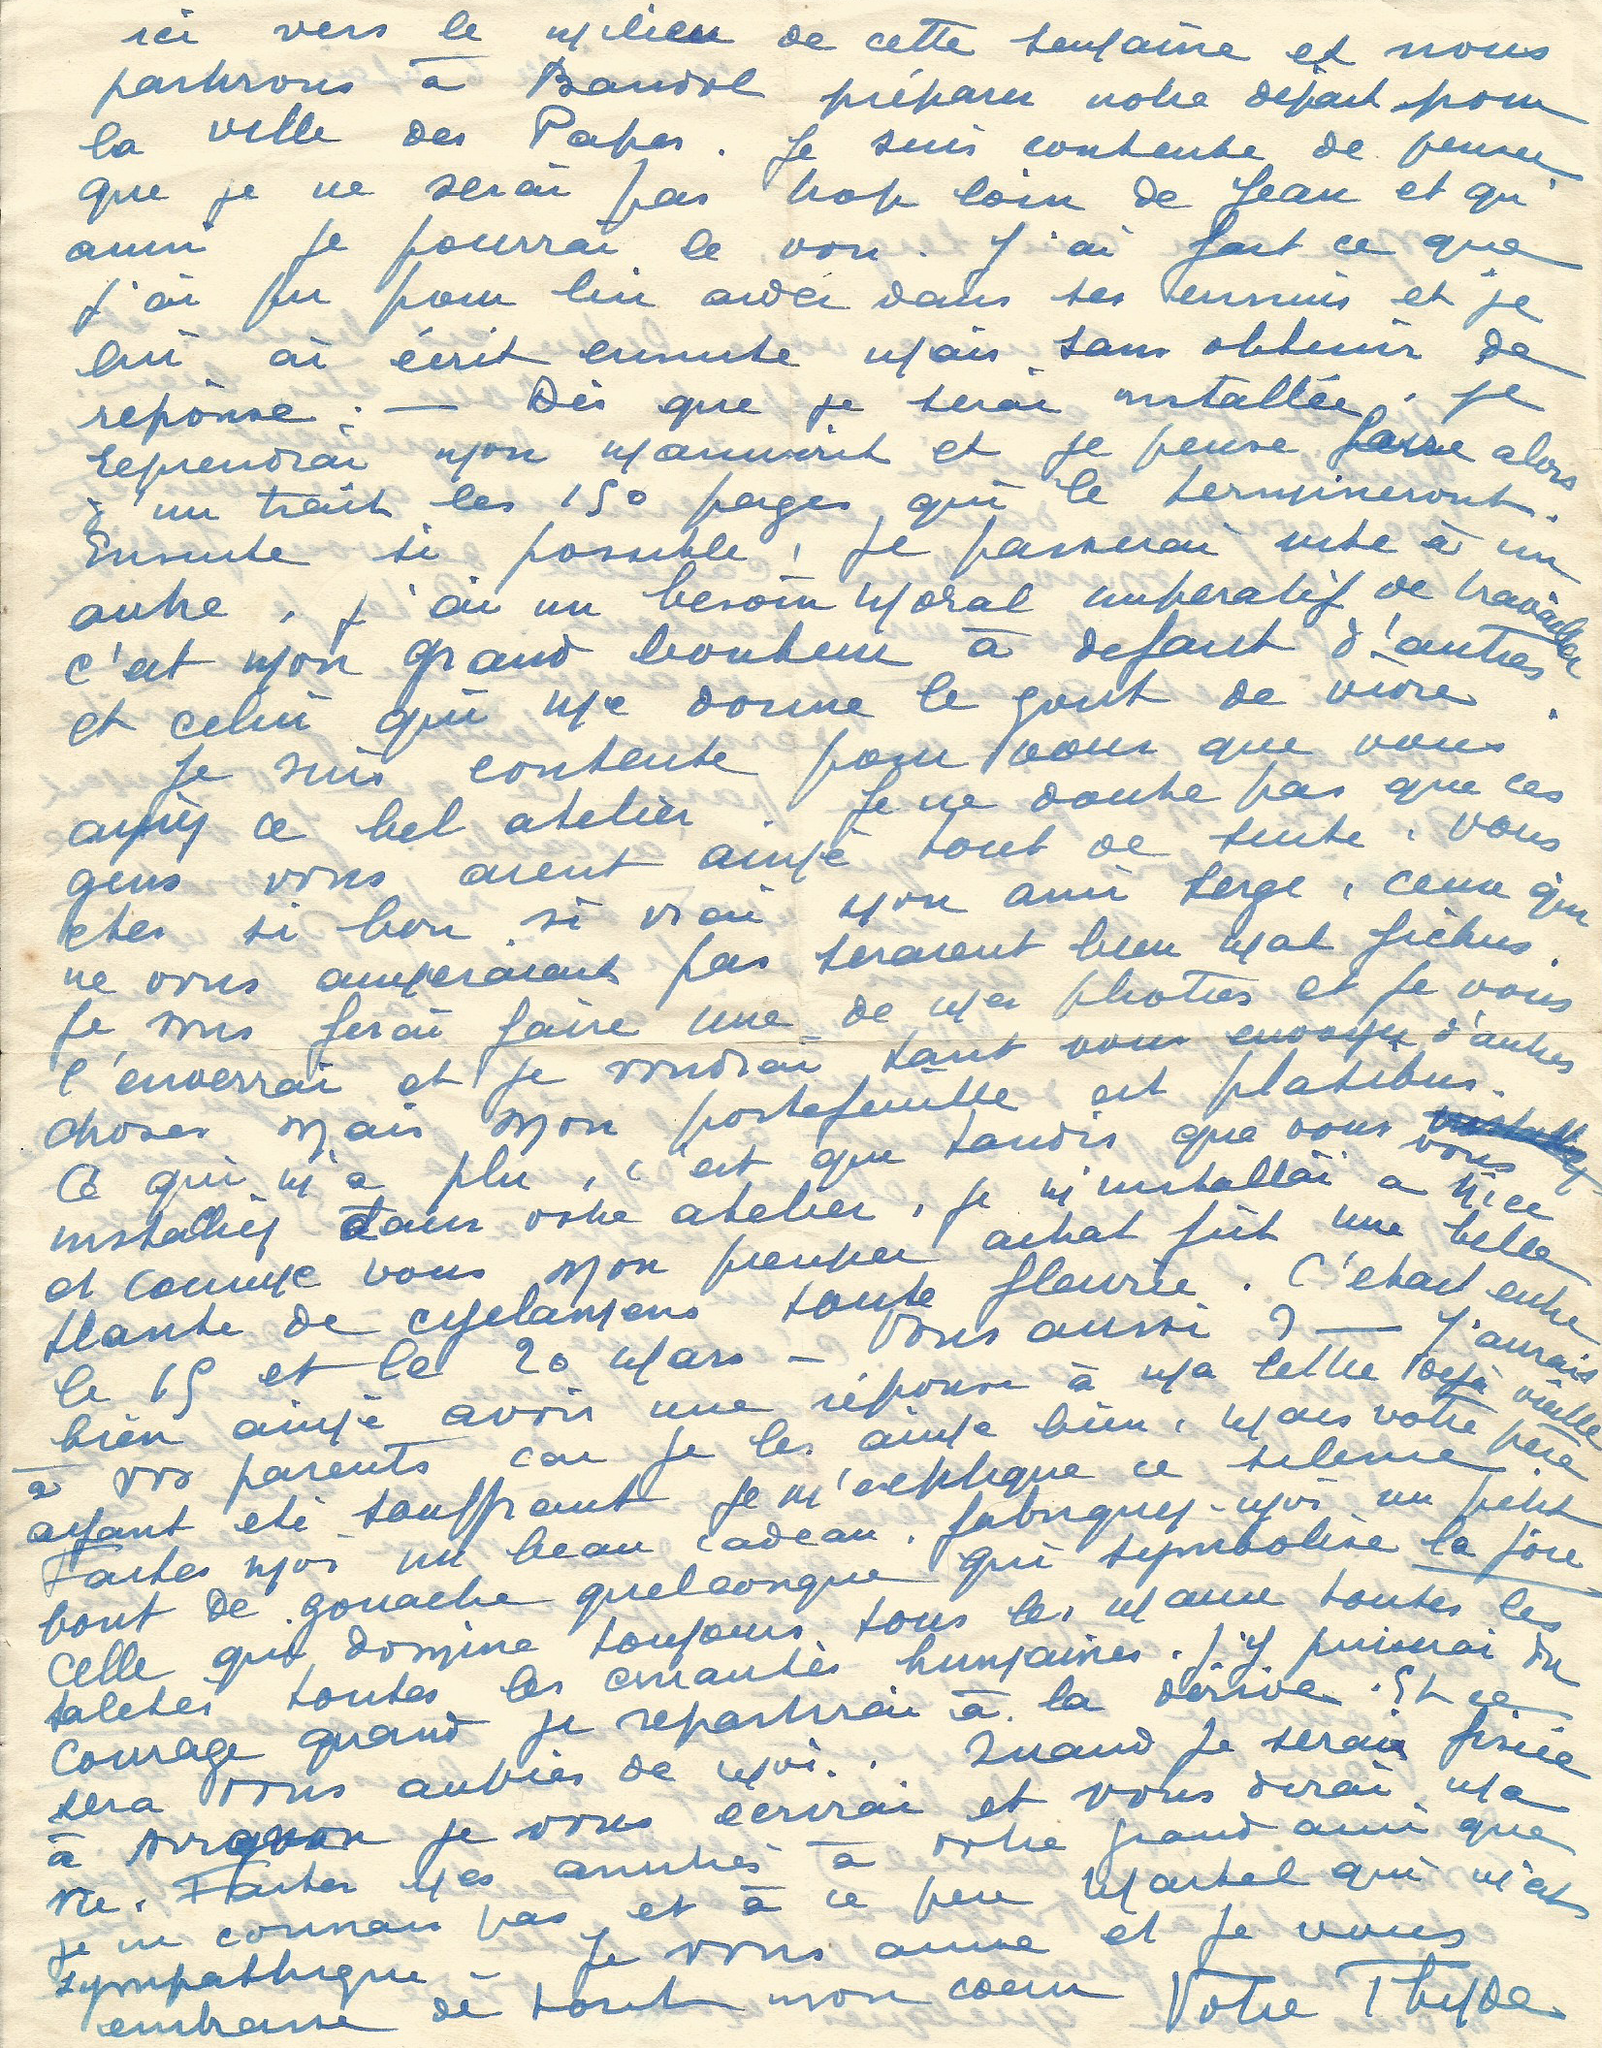 ici vers le milieu de cette semaine et nous
partirons à Bandol préparer notre départ pour
la ville des Papes. Je suis contente de penser
que je ne serai pas trop loin de Jean et qu'
ainsi je pourrai le voir. J'ai fait ce que
j'ai pu pour lui aider dans ses ennuis et je
lui ai écrit ensuite mais sans obtenir de
reponse. — Dès que je serai installée, je
reprendrai mon manuscrit et je pense faire alors
d'un trait les 150 pages qui le termineront.
Ensuite si possible, je passerai vite à un
autre, j'ai un besoin moral imperatif de travailler
c'est mon grand bonheur à defaut d'autres
et celui qui me donne le gout de vivre.
Je suis contente pour vous que vous
ayiez ce bel atelier. Je ne doute pas que ces
gens vous aient aimé tout de suite, vous
etes si bon, si vrai mon ami Serge, ceux qui
ne vous aimeraient pas seraient bien mal fichus.
Je vous ferai faire une de mes photos et je vous
l'enverrai et je voudrai tant vous envoyer d'autres
choses mais mon portefeuille est platibus.
Ce qui m'a plu, c'est que tandis que vous vous
installiez dans votre atelier, je m'installai a Nice
et comme vous mon premier achat fût une belle
plante de cyclamens toute fleurie. C'etait entre
le 15 et le 20 Mars — Vous aussi ? — J'aurais
bien aimé avoir une réponse à ma lettre deja vieille
à vos parents car je les aime bien, mais votre père
ayant eté souffrant je m'explique ce silence.
Faites moi un beau cadeau, fabriquez-moi un petit
bout de gouache quelconque qui symbolise la joie
celle qui domine toujours tous les maux toutes les
saletés toutes les cruautés humaines. J'y puiserai du
courage quand je repartirai à la dérive. Et ce
sera vous auprès de moi.. Quand je serai fixée
à Avignon je vous écrirai et vous dirai ma
vie. Faites mes amitiés à votre grand ami que
je ne connais pas et à ce peu Martel qui m'est
sympathique — Je vous aime et je vous
embrasse de tout mon coeur Votre Thyde